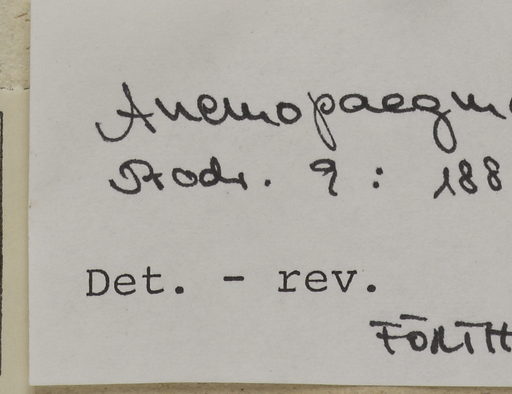 Anemopaegm
Prodr. 9: 188
Det. - rev.
FŌRTH